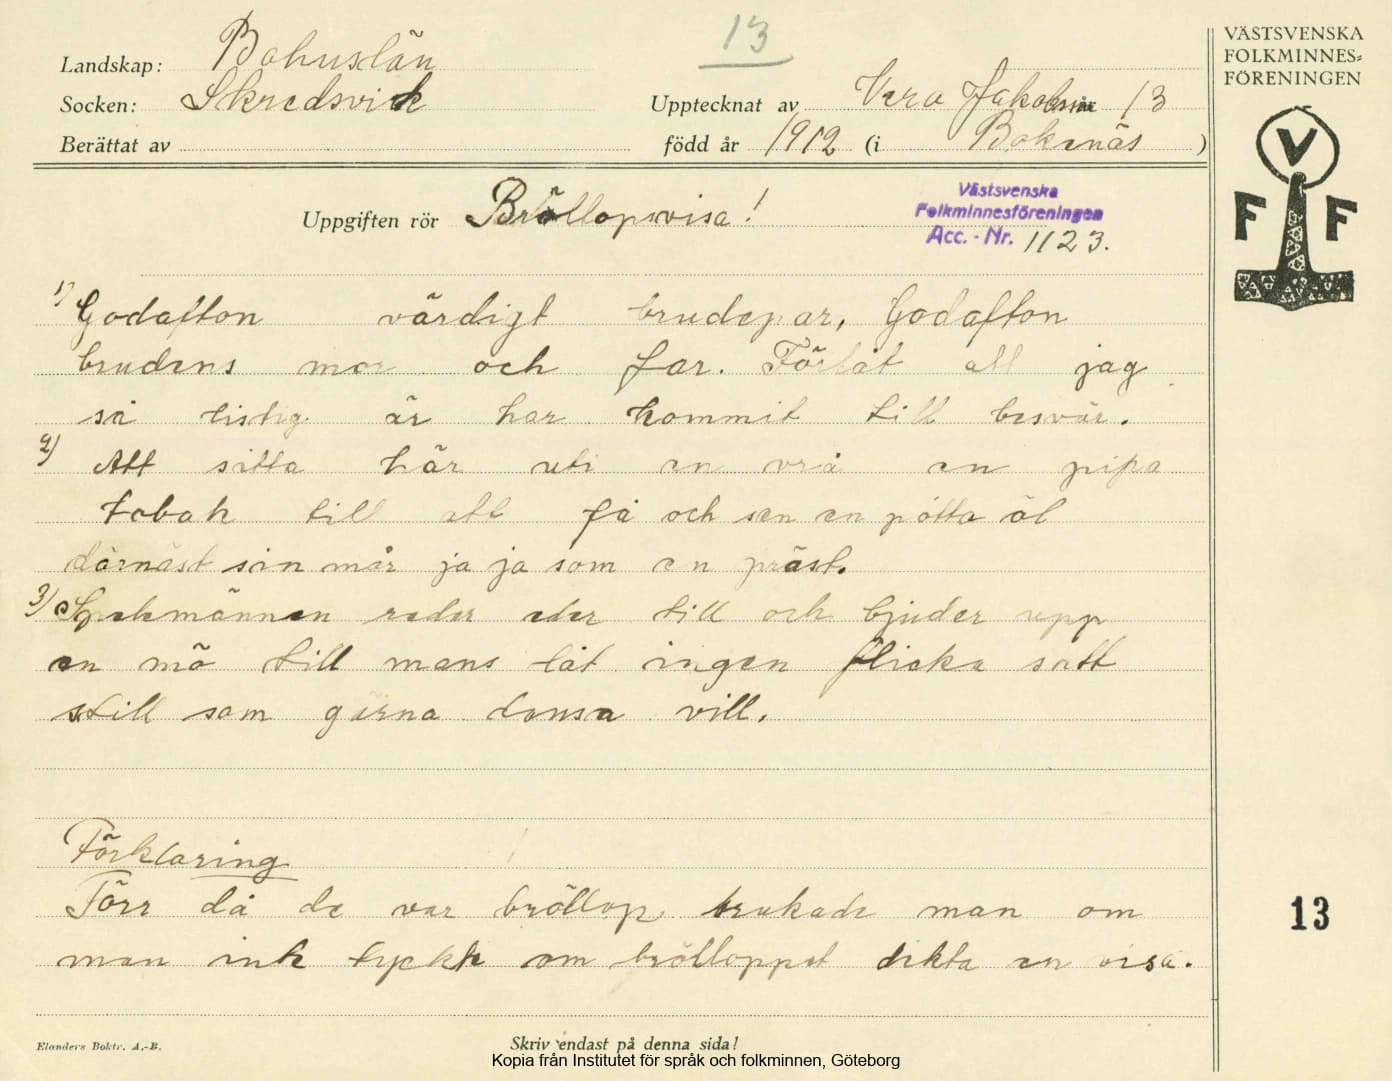 13
VÄSTSVENSKA
FOLKMINNES=
FÖRENINGEN
Landskap: Bohuslän
Socken: Skredsvick
Upptecknat av Vera Jakobsson 13
Berättat av
född år 1912 (i Bokenäs )
Uppgiften rör Bröllopsvisa!
Västsvenska
Folkminnesföreningen
Acc. - Nr. 1123.
V
F F
1) Godafton värdigt brudepar, Godafton
brudens mor och far. Förlåt att jag
så listig är har kommit till besvär.
2) Att sitta här uti en vrå en pipa
tobak till att få och sen en pótta öl
därnäst sen mår ja ja som en präst.
3) Spelemännen reder eder till och bjuder upp
en mö till mans låt ingen flicka sett
still som gärna dansa vill.
Förklaring
Förr då de var bröllop brukade man om
man ink tyckte om bröllopet dikta en visa.
13
Elanders Boktr. A.-B.
Skriv endast på denna sida!
Kopia från Institutet för språk och folkminnen, Göteborg